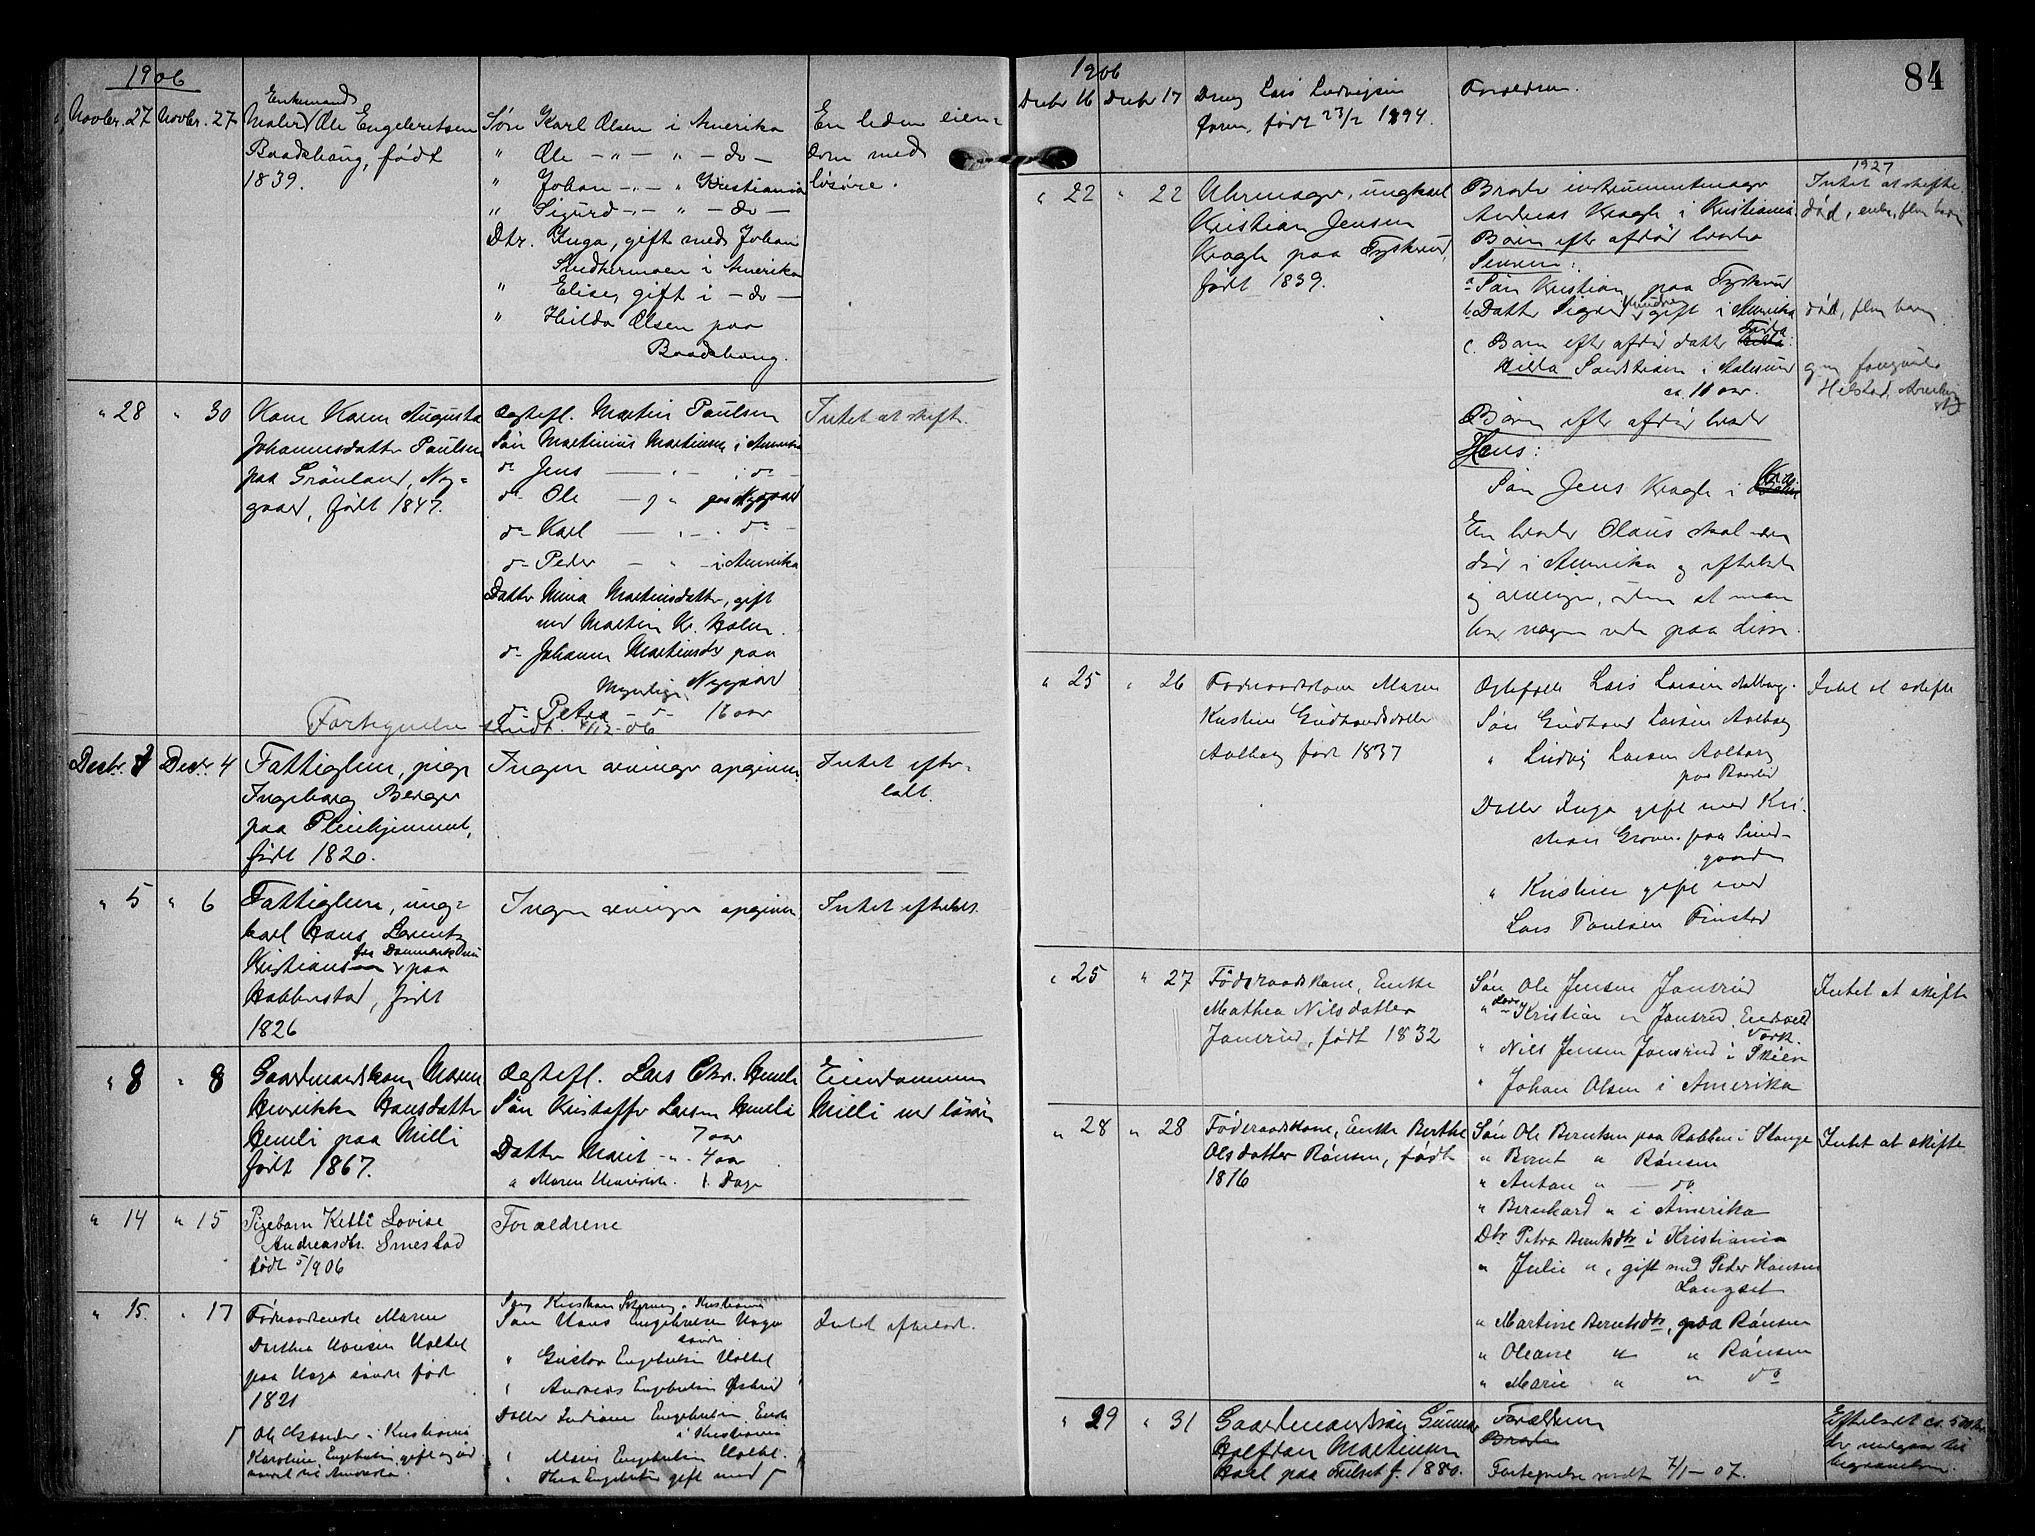 1906
Novbr. 27 Novbr. 27 Enkemand
Maler Ole Engebretsen
Baadshaug, født
1839.
Søn Karl Olsen i Amerika
" Ole - " - " - do -
" Johan - " - " Kristiania
" Sigurd - " - " - do -
Dtr. Inga, gift med Johan
i Amerika
" Elise, gift i - do -
" Hilda Olsen paa
Baadshaug.
En liden eien-
dom med
løsøre.
" 28 " 30 Kone Karen Augusta
Johannesdatter Paulsen
paa Grönland, Ny-
gaard, født 1847.
Ægtefl. Martin Paulsen
Søn Martinius Martinsen i Amerika
do Jens - " - i do -
do Ole - " paa Nygaard
do Karl - " - do -
do Peder - " - i Amerika
Datter Mina Martinsdatter, gift
med Martin Kr. Holm.
do Johanne Martinsdtr paa
Nygaard
Myndlige
do Petra - do - 16 aar
Intet at skifte.
Fortegnelse sendt 4/12-06
Desbr. 3 Desbr. 4 Fattiglem, pige
Ingeborg Berger
paa Pleiehjemmet,
født 1820.
Ingen arvinger opgivne.
Intet efter-
latt.
" 5 " 6 Fattiglem, ung-
karl Hans Lorentz
fra Danmark
Kristiansen paa
født
1826
Ingen arvinger opgivne.
Intet efterladt.
" 8 " 8 Gaardmandskone Maren
Henrikke Hansdatter
Hemli paa Milli
født 1867.
Ægtefl. Lars Chr. Hemli
Søn Kristoffer Larsen Hemli
7 aar
Datter Marit - " - 4 aar
" Maren Henrikke. 1 Dage
Eiendommen
Milli med løsøre
" 14 " 15 Pigebarn Ketli Lovise
Andreasdtr. Smestad
født 5/9 06
Forældrene
" 15. " 17 Føderaadsenke Maren
Dorthea Hansen Holtet
paa Haga søndre født
1821
Ole i Kristiania
Karoline Engebretsen, gift og
til Amerika.
Søn Kristian i Kristiania
Søn Hans Engebretsen Haga
søndre.
" Gustav Engebretsen Holtet
" Andreas Engebretsen
Datter Indiane Engebretsen, Enke
i Kristiania
" Maren Engebretsen Holtet.
" Thea Engebretsen gift med
Intet efterladt.
84
1906
Desbr 16 Desbr 17 Dreng Lars Ludvigsen
født 23/2 1894.
Forældrene.
" 22 " 22 Uhrmager, ungkarl
Kristian Jensen
Kragh paa Tyskrud,
født 1839.
Broder instrumentmager
Andreas Kragh i Kristiania.
Børn efter afdød broder
a Søn Kristian paa Tyskrud
b. Datter Sigrid gift i Amerika
c. Barn efter afdød datter
ca. 11 aar.
Børn efter afdød broder
Hans:
Søn Jens Kragh i
En broder Olaus skal være
død i Amerika og efterladt
sig arvinger, uden at man
har nogen rede paa disse.
1927
Intet at skifte.
død, enke, flere barn
død, flere barn
" 25 " 26 Føderaadskone Maren
Kristine Gudbrandsdatter
Aalborg født 1837
Ægtefælle Lars Larsen Aalborg.
Søn Gudbrand Larsen Aalborg
" Ludvig Larsen Aalborg
paa
Datter Inga gift med Kri-
stian paa
gaarden
" Kristine gift med
Lars Paulsen Finstad
Intet at skifte
" 25 " 27 Føderaadskone, Enke
Mathea Nilsdatter
Jonsrud, født 1832
Søn Ole Jensen Jonsrud
" Lars Kristian " Jonsrud, Eidsvold
Værk.
" Nils Jensen Jonsrud i Skien
" Johan Olsen i Amerika
Intet at skifte
" 28 " 28 Føderaadskone, Enke Berthe
Olsdatter Rønsen, født
1816
Søn Ole Berntsen paa Rabben i Stange
" Bernt " Rønsen
" Anton " - do
" Bernhard " i Amerika
Dtr. Petra Berntsdtr i Kristiania
" Julie ", gift med Peder Hansen
Langset
" Martine Berntsdtr, paa Rønsen
" Oleane " " Rønsen
" Marie " " do
Intet at skifte
" 29 " 31 Gaardmandssøn Gunnar
Halfdan Martinsen
paa f. 1880.
Forældrene
Fortegnelse sendt 7/1-07.
Efterladt ca. 500 kr.
der medgaar til
begravelsen.